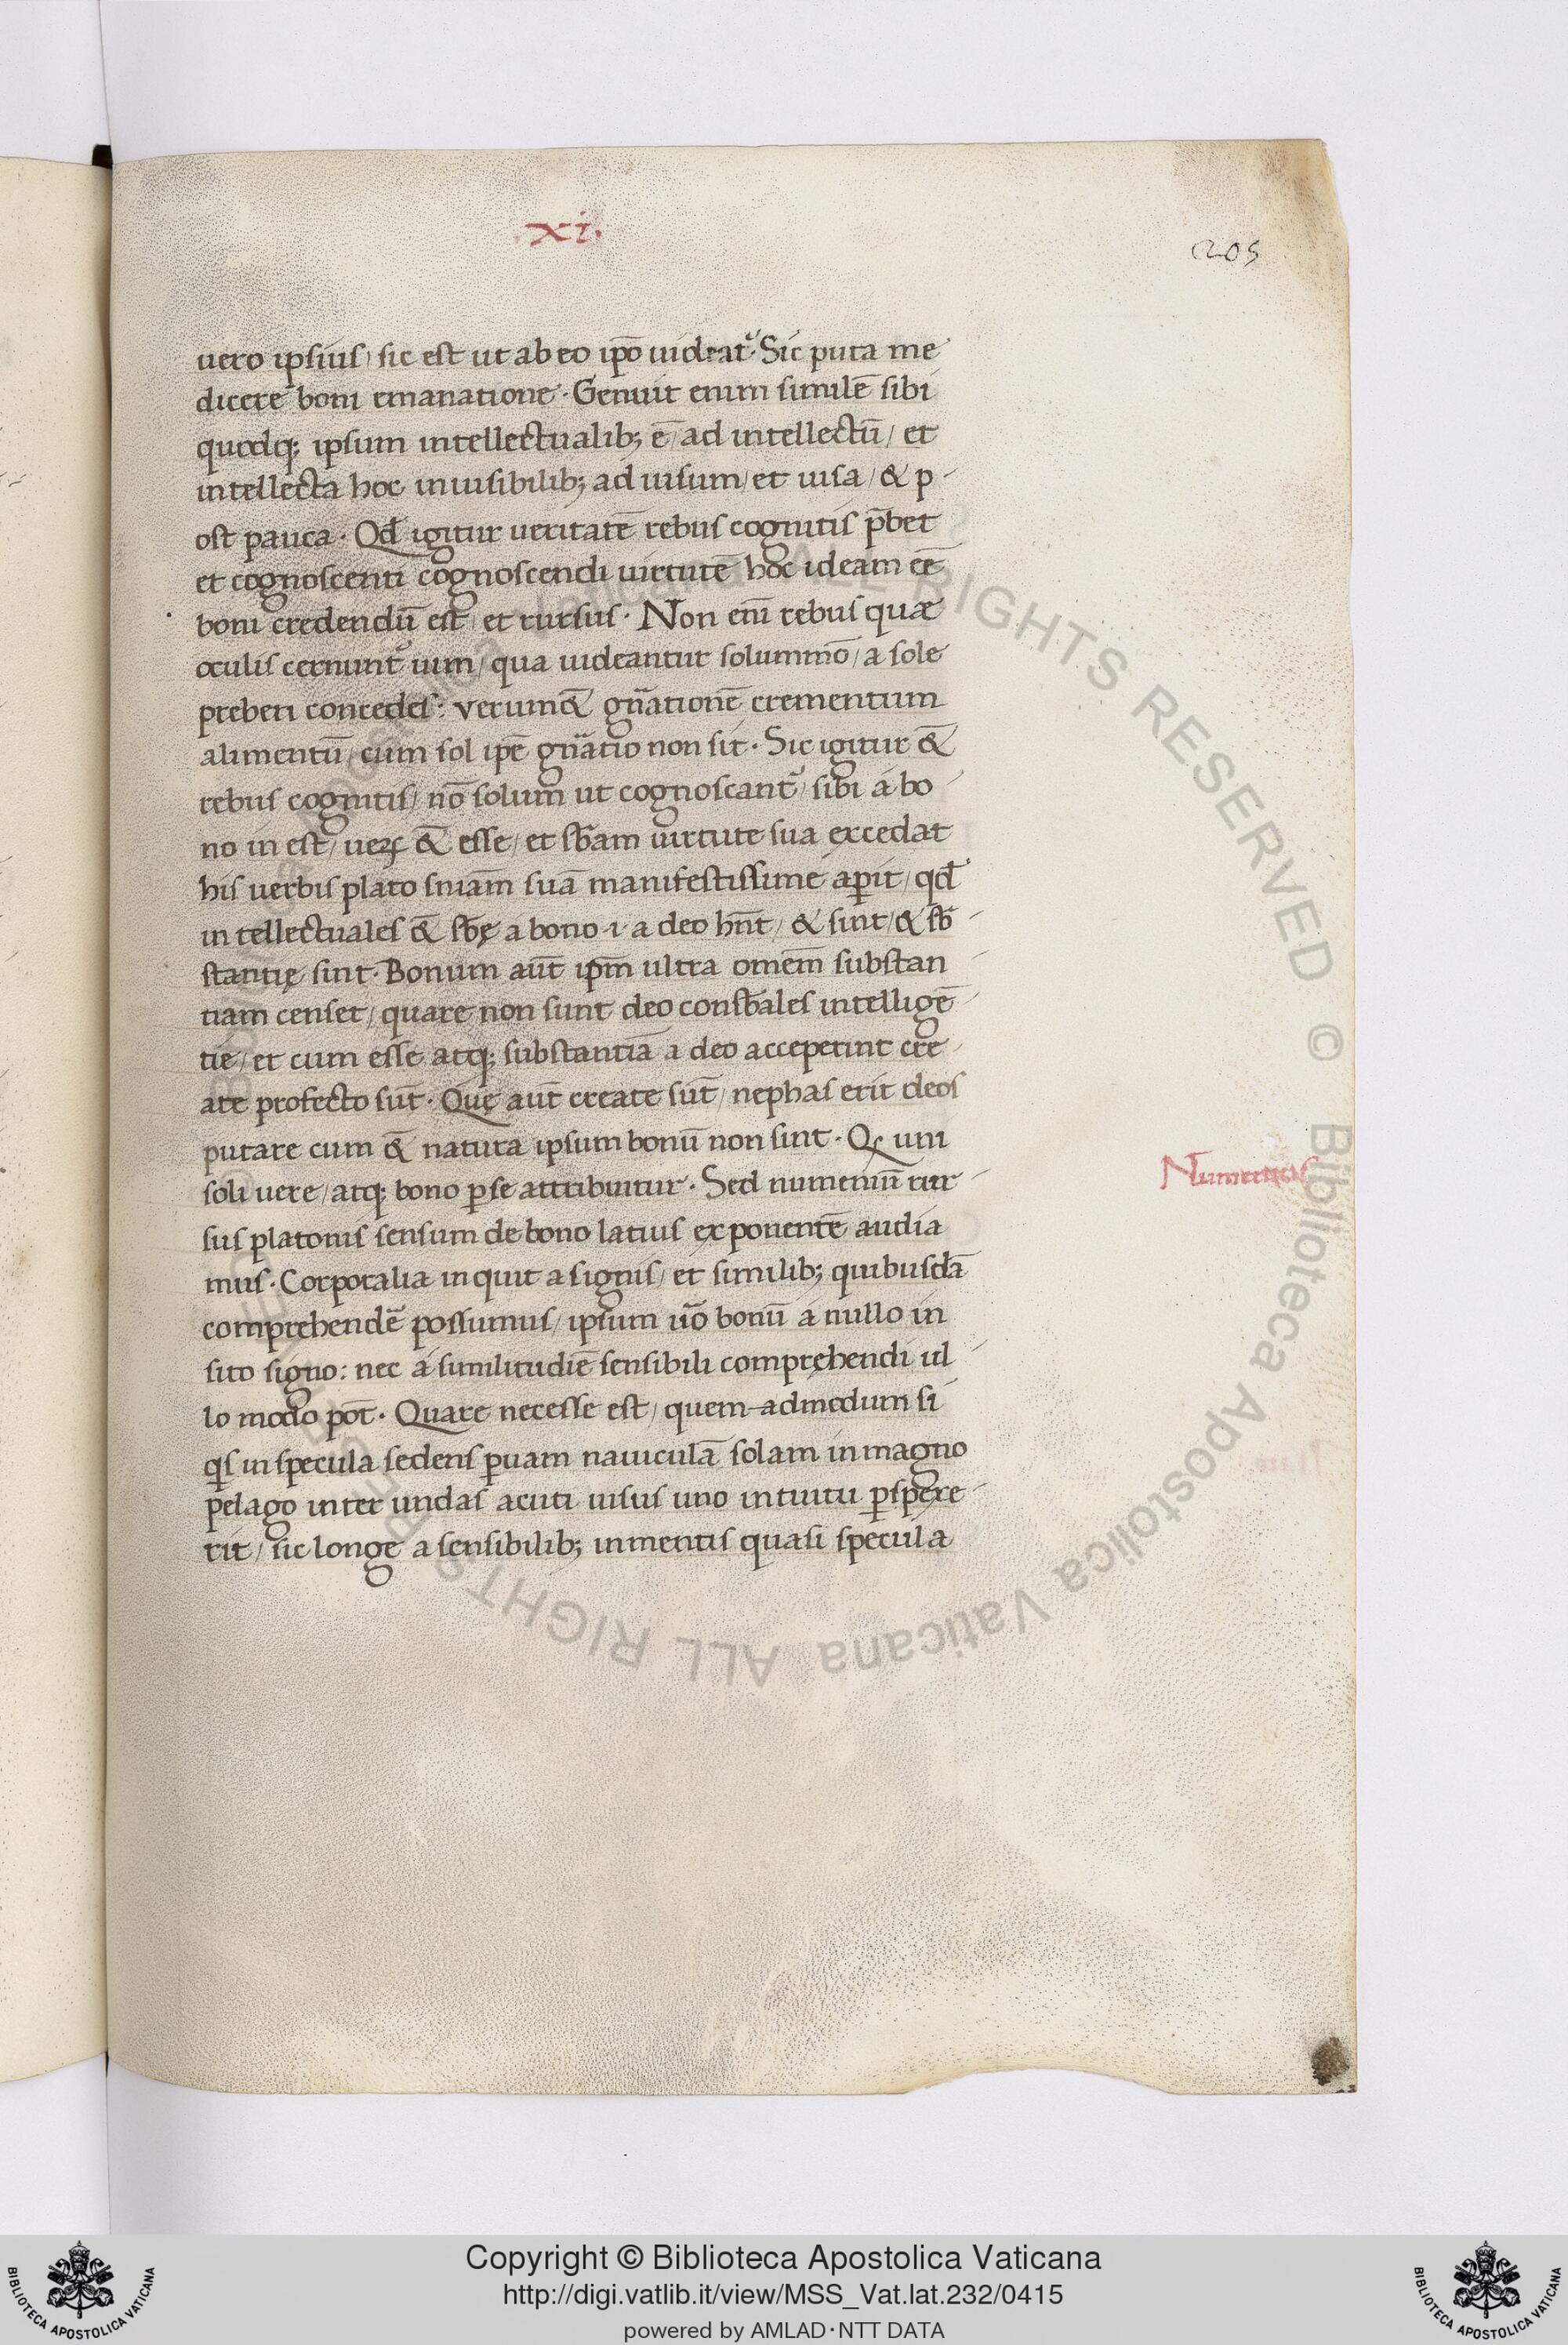 .xi.
205
uero ipsius/ sic est ut ab eo ip̄o uideat᷑. Sic puta me
dicere boni emanatione. Genuit enim similē sibi
quodq; ipsum intellectualib; ē/ ad intellectū/ et
intellecta hoc in uisibilib; ad uisum/ et uisa/ & p-
ost pauca. Qd̄ igitur ueritatē rebus cognitis p̄bet
et cognoscenti cognoscendi uirtutē hoc ideam eē
boni credendū est/ et rursus. Non eni᷑ rebus quæ
oculis cernunt᷑ uim/ qua uideantur solummō/ a sole
preberi concedes: verum&̄ gn̄ationē crementum
alimentū/ cum sol ip̄e gn̄atio non sit. Sic igitur &̄
rebus cognitis/ nō solum ut cognoscant᷑/ sibi a bo-
no in est/ ueꝝ &̄ esse/ et sb̄am uirtute sua excedat
his uerbis plato sn̄iam suā manifestissime aꝑit/ qd̄
intellectuales &̄ sb̄ę a bono .i. a deo hn̄t/ & sint/ & sb̄-
stantię sint. Bonum aūt ip̄m ultra omēm substan-
tiam censet/ quare non sunt deo consb̄ales intelligē-
tie/ et cum esse atq; substantiā a deo acceperint cre-
ate profecto sūt. Quę aūt create sūt/ nephas erit deos
putare cum &̄ natura ipsum bonū non sint. Qꝫ uni
soli uere/ atq; bono ꝑ se attribuitur. Sed numeniū rur-
sus platonis sensum de bono latius exponentē audia
mus. Corporalia inquit a signis/ et similib; quibusdā
comprehendē possumus/ ipsum u᷑o bonū a nullo in
sito signo: nec a similitudiē sensibili compręhendi ul-
lo modo pōt. Quare necesse est/ quem-admodum si
qͥs in specula sedens ꝑuam nauiculā solam in magno
pelago inter undas acuti uisus uno intuitu ꝑspexe-
rit/ sic longe a sensibilib; in mentis quasi specula
Numenios
Copyright © Biblioteca Apostolica Vaticana
http://digi.vatlib.it/view/MSS_Vat.lat.232/0415
powered by AMLAD·NTT DATA
BIBLIOTECA APOSTOLICA VATICANA
BIBLIOTECA APOSTOLICA VATICANA
ALL RIGHTS RESERVED © Biblioteca Apostolica Vaticana ALL RIGHTS